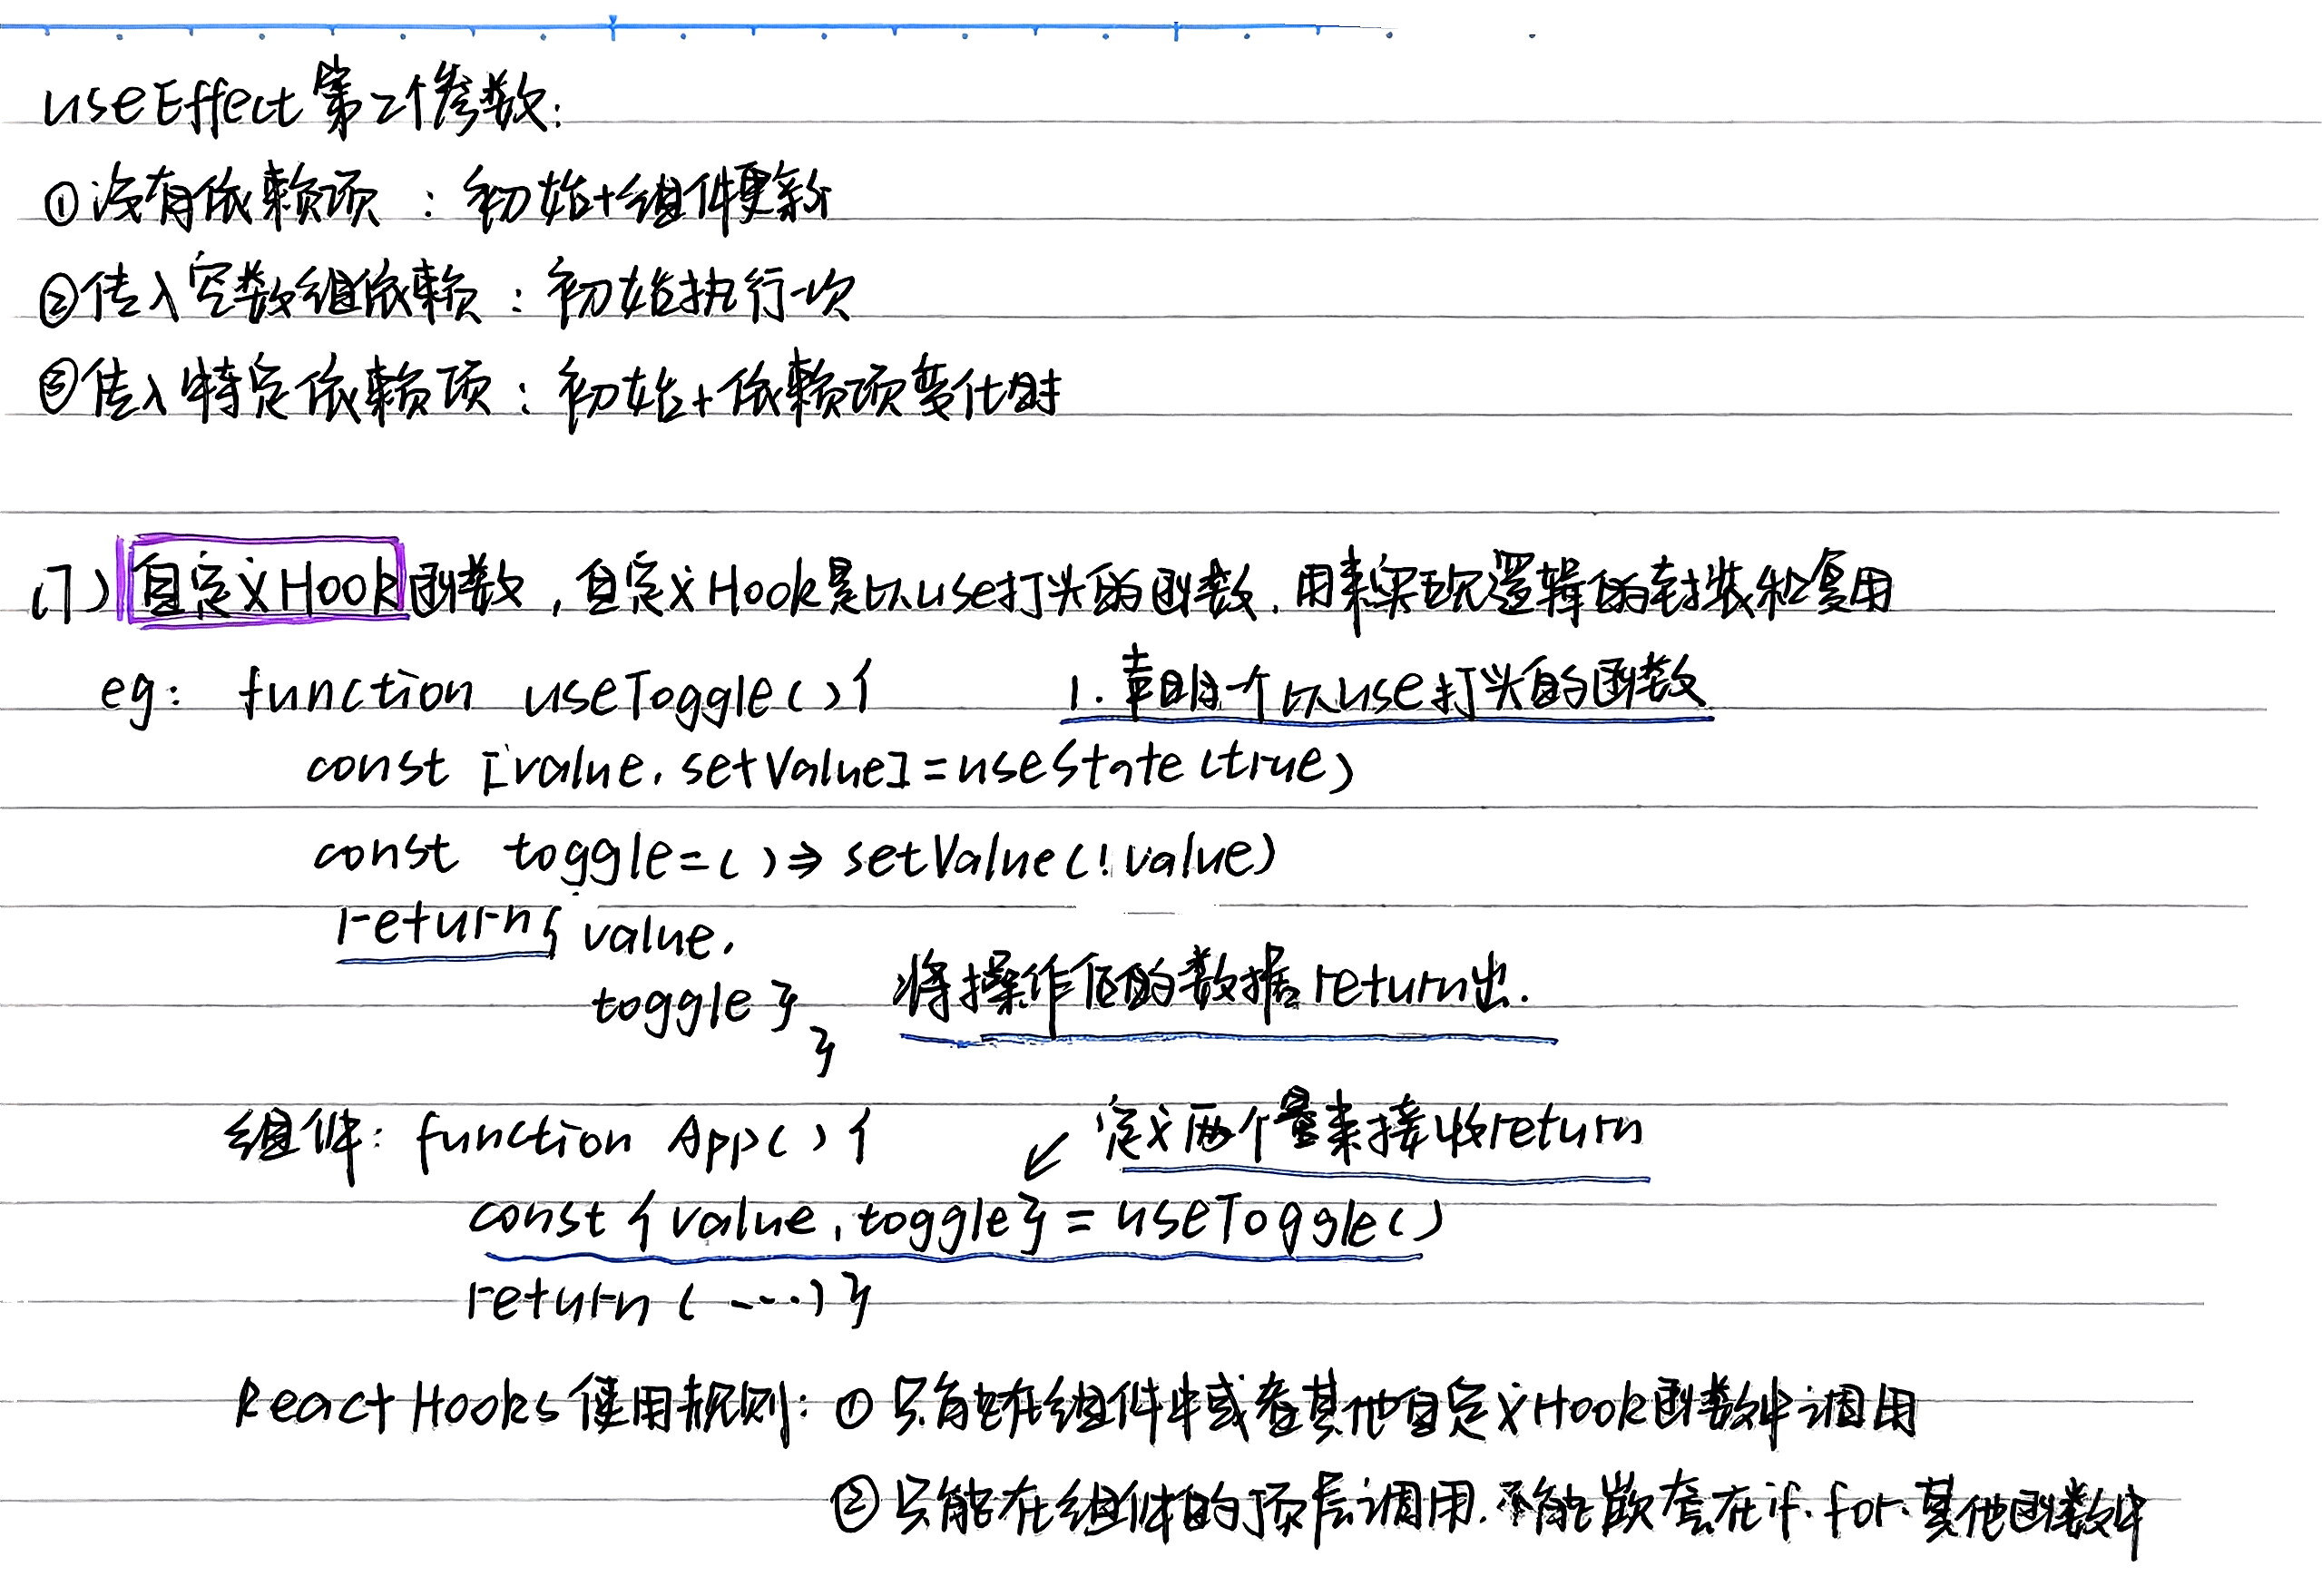 useEffect第二个参数:
①没有依赖项 : 初始+组件更新
②传入空数组依赖 : 初始执行一次
③传入特定依赖项 : 初始+依赖项变化时
(7) 自定义Hook函数,自定义Hook是以use打头的函数,用来实现逻辑的封装和复用
eg: function useToggle(){ 1.声明一个以use打头的函数
const [value, setValue]=useState(true)
const toggle=()=>setValue(!value)
return{ value,
toggle} 将操作后的数据return出.
}
组件: function App(){ ↙ 定义两个量来接收return
const {value,toggle}=useToggle()
return (----)}
React Hooks使用规则: ①只能在组件中或者其他自定义Hook函数中调用
②只能在组件的顶层调用.不能嵌套在if.for.其他函数中